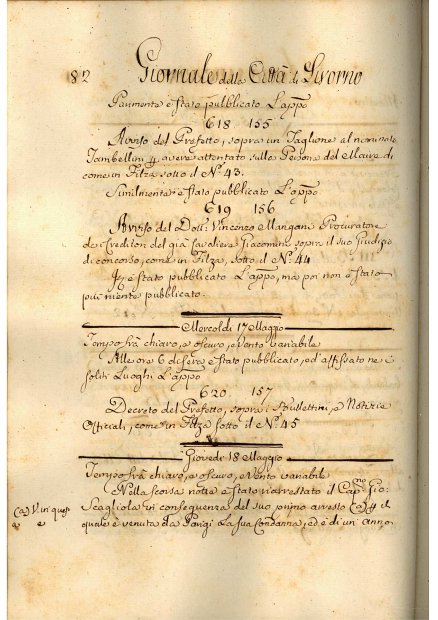 82 Giornale della Città di Livorno
Parimente è stato pubblicato l'app.o
618 155
Avviso del Prefetto, sopra un Taglione al nominato
Tambellini p avere attentato sulla Persona del Maire di
come in Filza sotto il N.o 43.
Similmente è stato pubblicato l'app.o
619 156
Avviso del Dott.r Vincenzo Mangani Procuratore
dei Creditori del già Cavaliere Giacomini sopra il suo Giudizio
di concorso, come in Filza, sotto il N.o 44
è stato pubblicato l'app.o, ma poi non è stato
più niente pubblicato.
Mercoldì 17 Maggio
Tempo frà chiaro, e oscuro, e Vento variabile
Alle ore 6 di sera è stato pubblicato, ed affissato ne i
soliti Luoghi l'app.o
620 157
Decreto del Prefetto, sopra i Bullettini, e Notizie
Officiali, come in Filza sotto il N.o 45
Giovedì 18 Maggio
Tempo frà chiaro, e oscuro, e Vento variabile
Nella scorsa notte è stato riarrestato il Cap.no Gio:
Scagliola in conseguenza del suo primo arresto (a) p il
quale è venuta da Parigi la sua Condanna, ed è di un anno.
(a) V. in ques
e